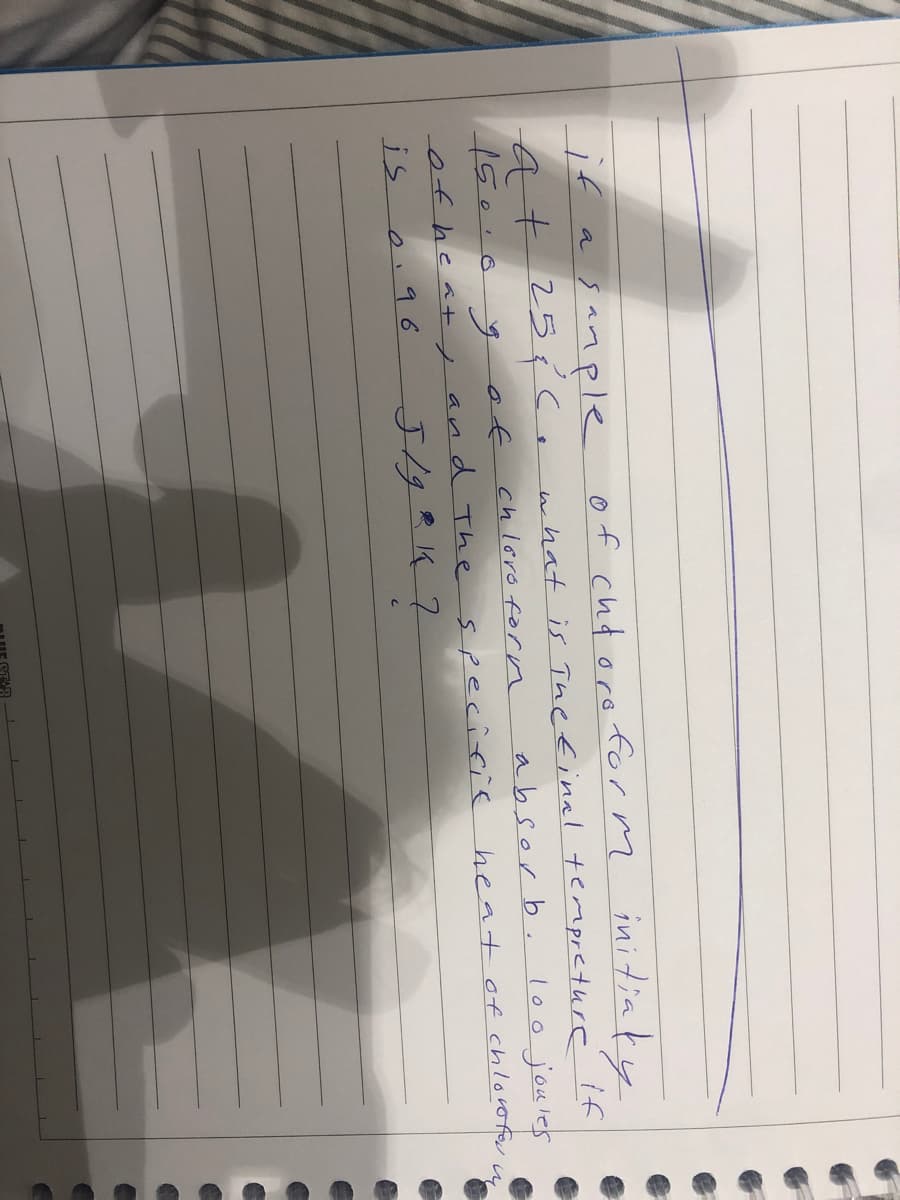 if a sample of chdoroform initialy
at 25°C. what is The final tempreture if
150.0 g of chloroform absorb. 100 joules
of heat, and The specific heat of chloroform
is 0.96 J/g k?